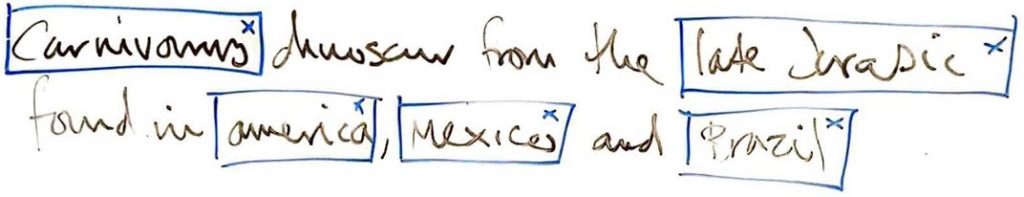 Carnivorous dinosaur from the late Jurasic
found in america, Mexico and Brazil